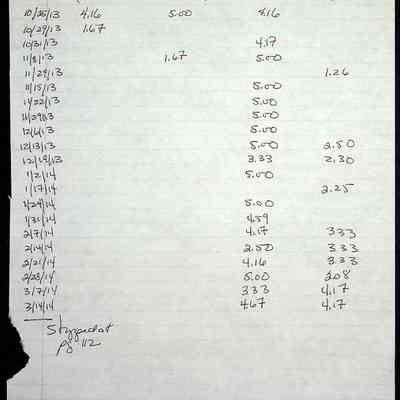 10/25/13 4.16 5.00 4.16
10/29/13 1.67
10/31/13 4.17
11/8/13 1.67 5.00
11/29/13 1.26
11/15/13 5.00
11/22/13 5.00
11/29/13 5.00
12/6/13 5.00
12/13/13 5.00 2.50
12/19/13 3.33 2.30
1/2/14 5.00
1/17/14 2.25
1/24/14 5.00
1/31/14 4.59
2/7/14 4.17 333
2/14/14 2.50 333
2/21/14 4.16 3.33
2/28/14 5.00 208
3/7/14 333 4.17
3/14/14 4.67 4.17
Stopped at
pg 112